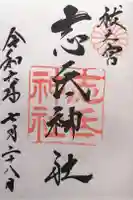 祓大宮
志氐神社
志氐神社
令和六年七月二十八日